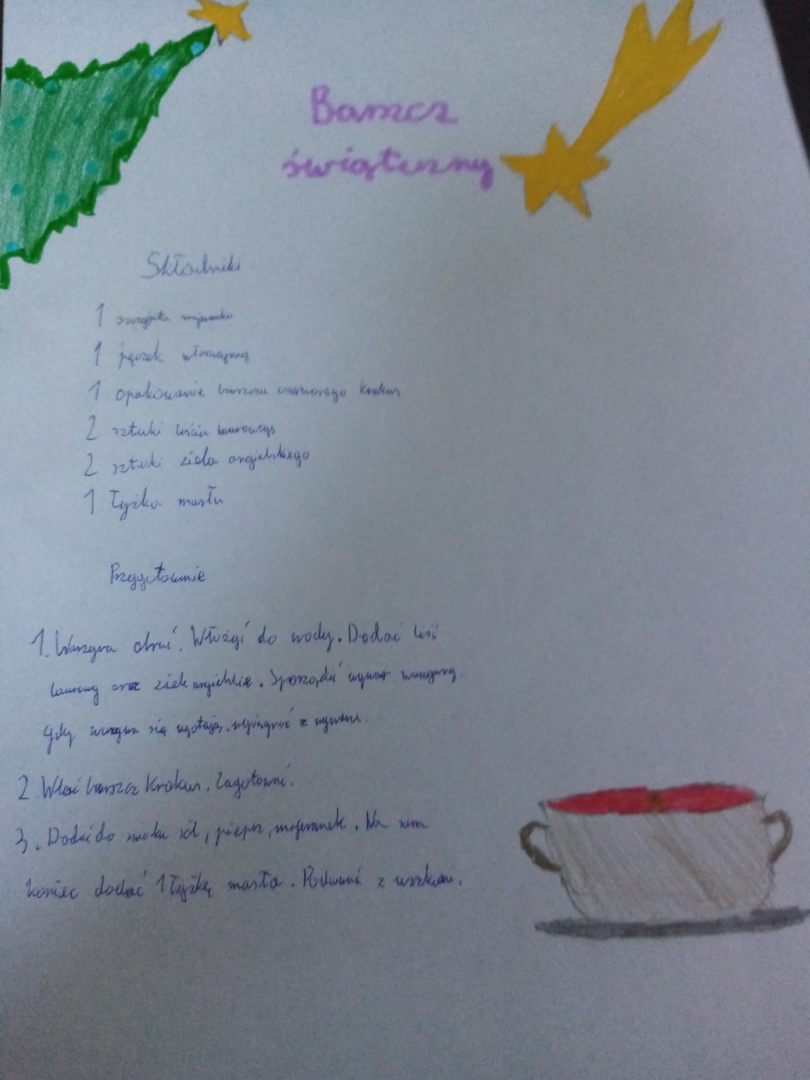 Barszcz
świąteczny
Składniki
1 szczypta majeranku
1 pęczek włoszczyzny
1 opakowanie barszczu czerwonego Krakus
2 sztuki liścia laurowego
2 sztuki ziela angielskiego
1 łyżka masła
Przygotowanie
1. Warzywa obrać. Włożyć do wody. Dodać liść
laurowy oraz ziele angielskie. Sporządzić wywar warzywny
gdy warzywa się ugotają, wyciągnąć z wywaru.
2. Wlać barszcz Krakus. Zagotować.
3. Dodać do smaku sól, pieprz, majeranek. Na sam
koniec dodać 1 łyżkę masła. Podawać z uszkami.